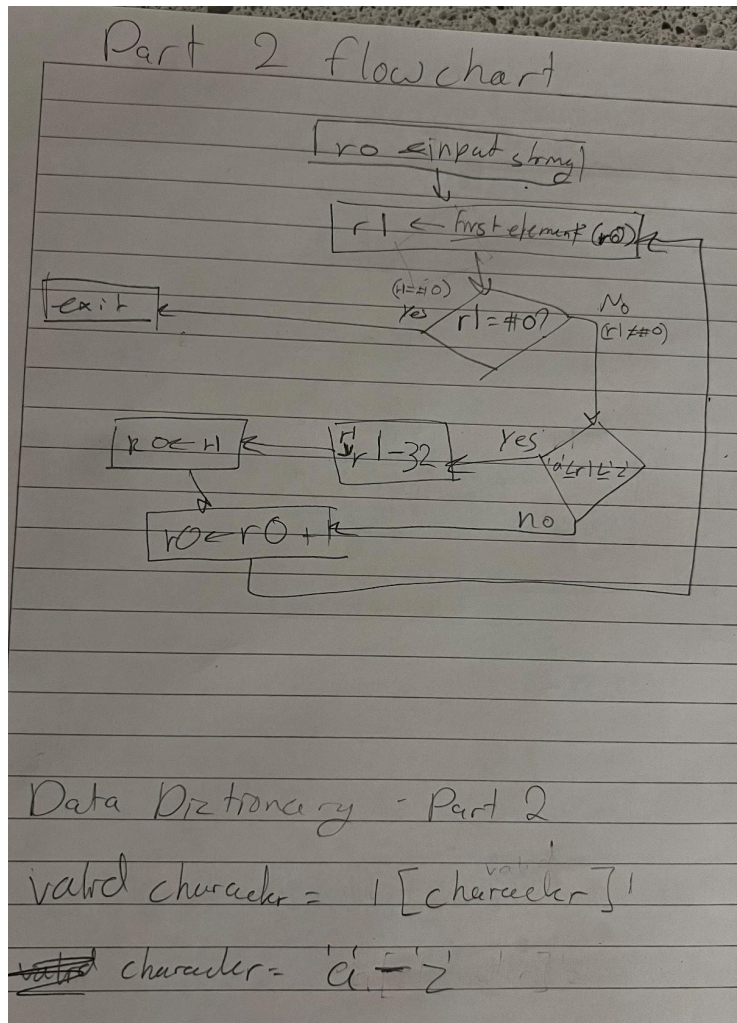 Part 2 flowchart
r0 ← input string
r1 ← First element (r0)
(r1=#0)
Yes
r1 = #0?
No
(r1≠#0)
exit
r0 ← r1
r1 - 32
Yes
'a' ≤ r1 ≤ 'z'
r0 ← r0 + 1
no
Data Dictionary - Part 2
valid character = ' [character] '
character = 'a' - 'z'